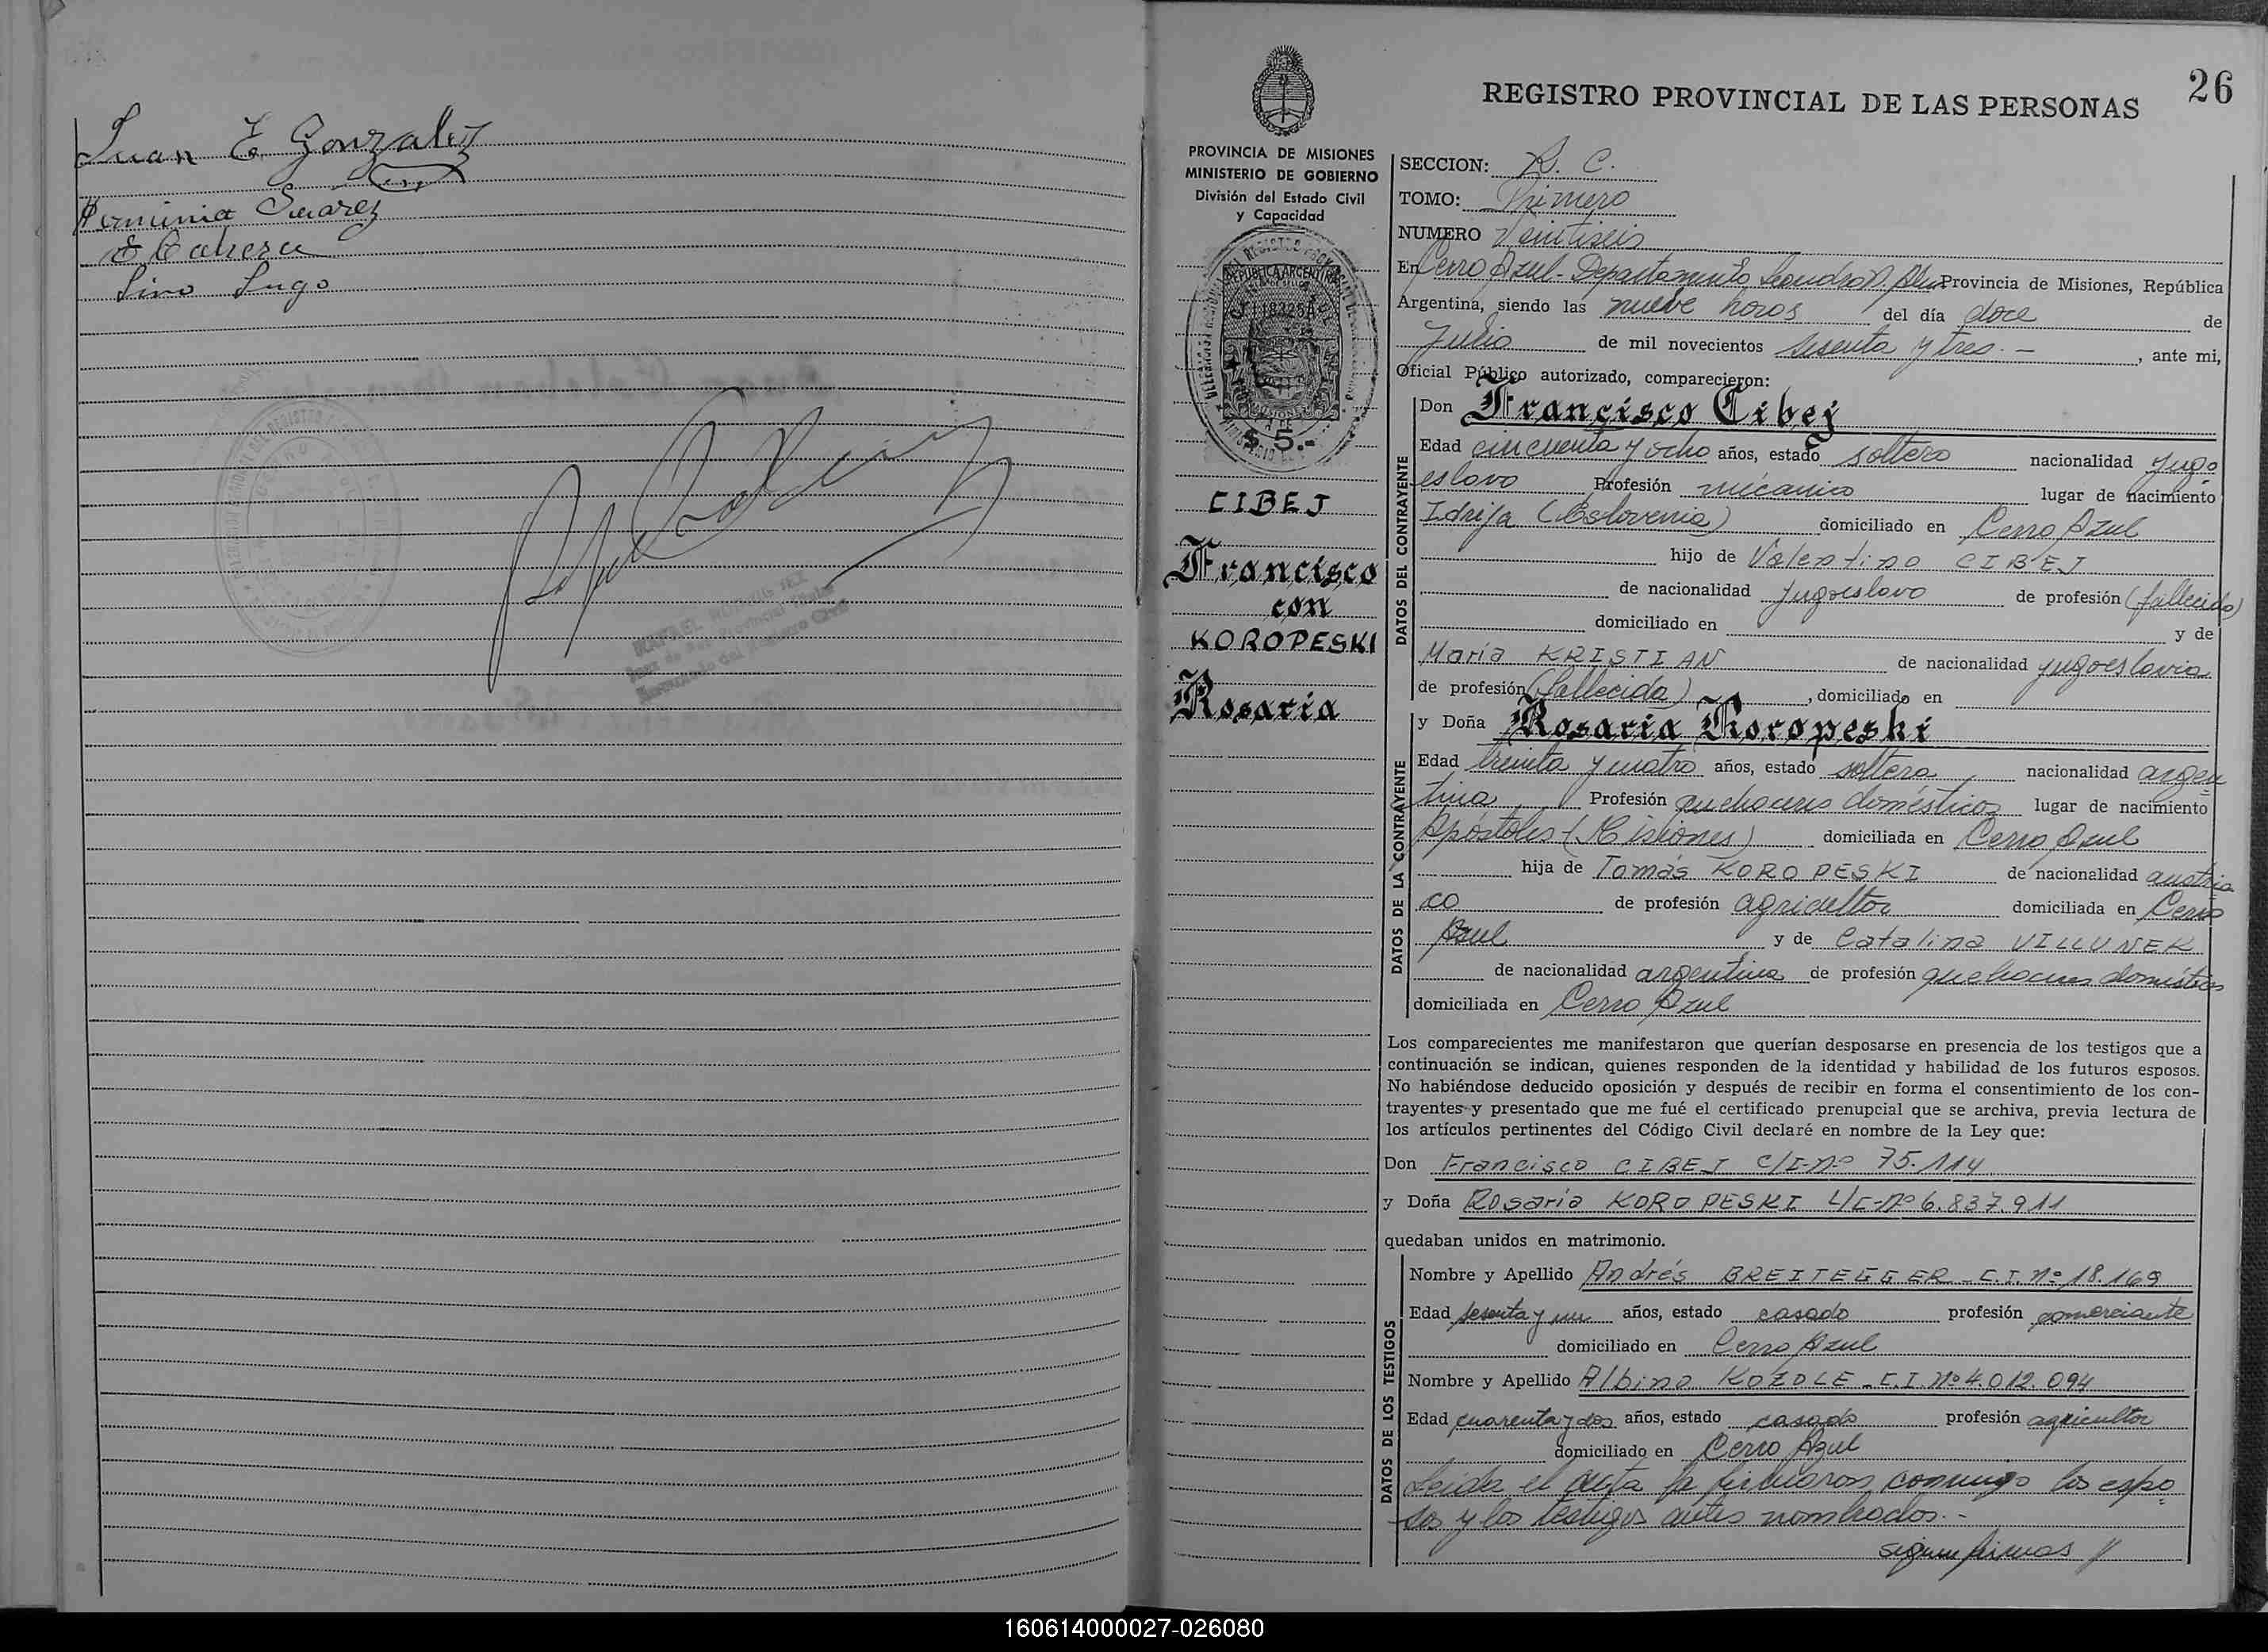 Juan E. Gonzalez
Herminia Suarez
E Cabrera
Lino Lugo
26
REGISTRO PROVINCIAL DE LAS PERSONAS
PROVINCIA DE MISIONES
MINISTERIO DE GOBIERNO
División del Estado Civil
y Capacidad
REPUBLICA ARGENTINA
$ 5.-
CIBEJ
Francisco
con
KOROPESKI
Rosaria
SECCION: R. C.
TOMO: Primero
NUMERO Veintiseis
En Cerro Azul - Departamento Leandro N. Alem Provincia de Misiones, República
Argentina, siendo las nueve horas del día doce de
Julio de mil novecientos sesenta y tres.- , ante mi,
Oficial Público autorizado, comparecieron:
DATOS DEL CONTRAYENTE
Don Francisco Cibej
Edad cincuenta y ocho años, estado soltero nacionalidad yugo
eslavo Profesión mécanico lugar de nacimiento
Idrija (Eslovenia) domiciliado en Cerro Azul
hijo de Valentino CIBEJ
de nacionalidad yugoeslavo de profesión (fallecido)
domiciliado en y de
María KRISTIAN de nacionalidad yugoeslavia
de profesión (fallecida) , domiciliado en
DATOS DE LA CONTRAYENTE
y Doña Rosaria Koropeski
Edad treinta y cuatro años, estado soltera nacionalidad argen
tina Profesión quehaceres domésticos lugar de nacimiento
Apóstoles (Misiones) domiciliada en Cerro Azul
hija de Tomás KOROPESKI de nacionalidad austria
co de profesión agricultor domiciliada en Cerro
Azul y de Catalina VILLUNEK
de nacionalidad argentina de profesión quehaceres domésticos
domiciliada en Cerro Azul
Los comparecientes me manifestaron que querían desposarse en presencia de los testigos que a
continuación se indican, quienes responden de la identidad y habilidad de los futuros esposos.
No habiéndose deducido oposición y después de recibir en forma el consentimiento de los con-
trayentes y presentado que me fué el certificado prenupcial que se archiva, previa lectura de
los artículos pertinentes del Código Civil declaré en nombre de la Ley que:
Don Francisco CIBEJ C/I-nº 75.114
y Doña Rosaria KOROPESKI L/C-nº 6.837.911
quedaban unidos en matrimonio.
DATOS DE LOS TESTIGOS
Nombre y Apellido Andrés BREITEGGER - C.I. nº 18.169
Edad sesenta y un años, estado casado profesión comerciante
domiciliado en Cerro Azul
Nombre y Apellido Albino KOZOLE - C.I. nº 4.012.094
Edad cuarenta y dos años, estado casado profesión agricultor
domiciliado en Cerro Azul
Leida el acta la firmaron conmigo los espo
sos y los testigos antes nombrados.-
siguen firmas //
160614000027-026080